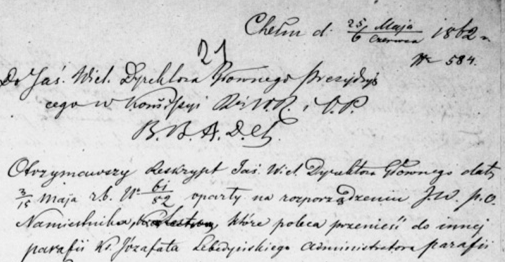 Chełm d: 25/6 Maja/Czerwca 1862 r.
21
№ 584.
Do Jaś. Wiel. Dyrektora Głównego Prezydują
cego w Kommissyi
Otrzymawszy Reskrypt Jaś. Wiel. Dyrektora Głównego daty
3/15 Maja r.b. № 61/52, oparty na rozporządzeniu JW. p.o.
Namiestnika, które poleca przenieść do innej
parafii Ks. Józafata Lebedyńskiego Administratora parafii